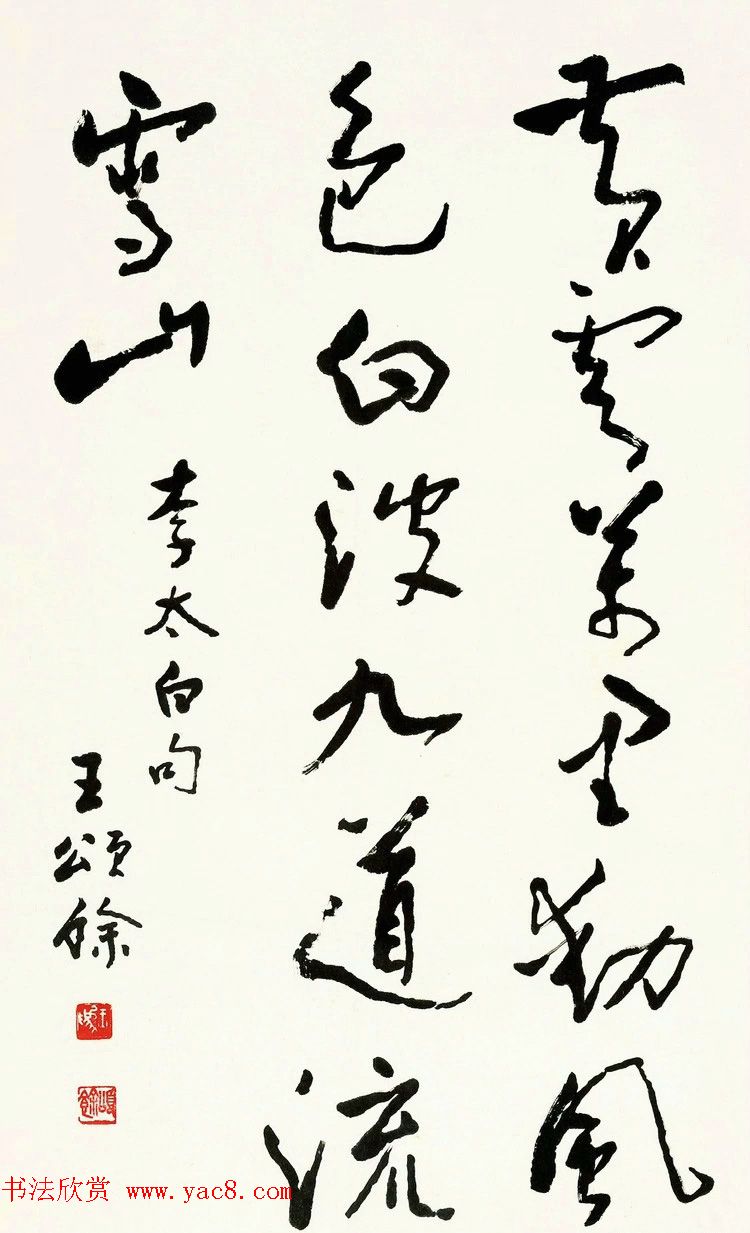 黄雲萬里動風
色白波九道流
雪山
李太白句
王頌餘
书法欣赏 www.yac8.com